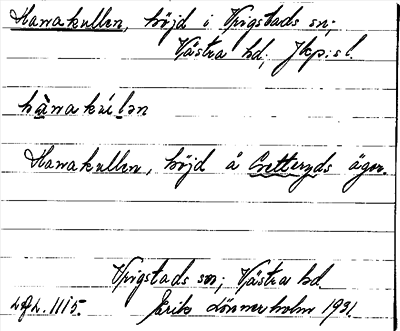 Harrakullen, höjd i Vrigstads sn;
Västra hd, Jkp:s l.
hàrakúlən
Harrakullen, höjd å Cretteryds ägor.
Vrigstads sn; Västra hd.
2 1115. Erik Lönnerholm 1931.